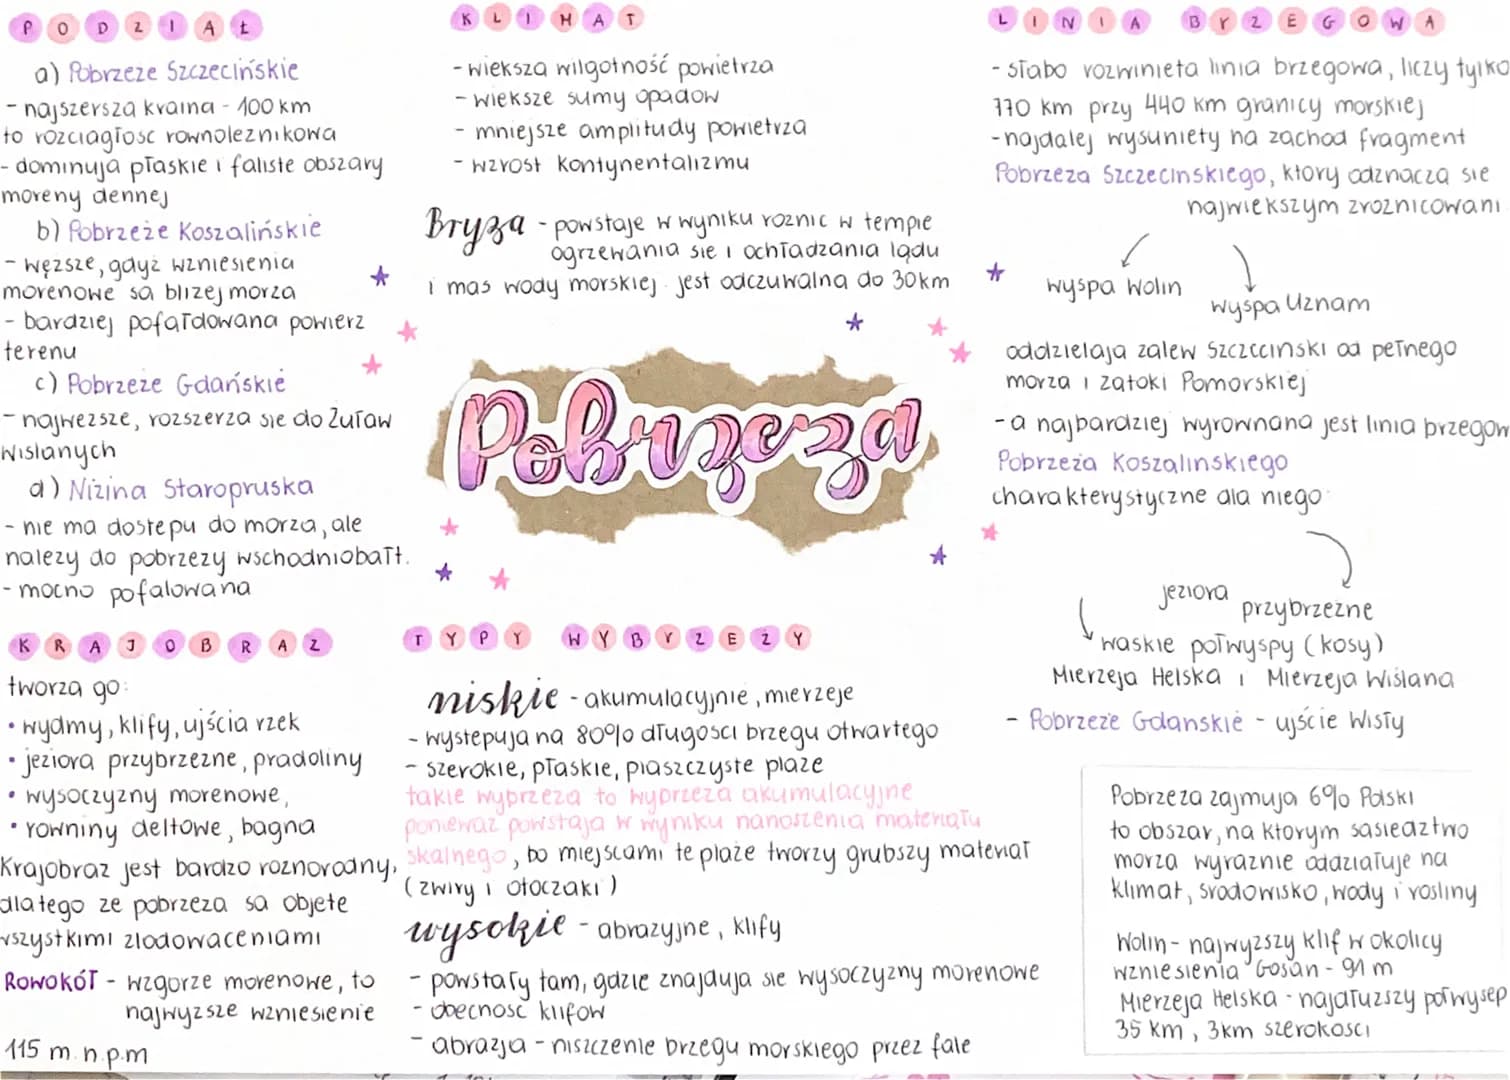 PODZIAŁ
a) Pobrzeże Szczecińskie
- najszersza kraina - 100 km
to rozciagłosc rownoleznikowa
- dominuja płaskie i faliste obszary
moreny dennej
b) Pobrzeże Koszalińskie
- węzsze, gdyż wzniesienia
morenowe sa blizej morza
- bardziej pofałdowana powierz
terenu
c) Pobrzeże Gdańskie
- najwezsze, rozszerza sie do Żuław
Wislanych
d) Nizina Staropruska
- nie ma dostepu do morza, ale
nalezy do pobrzezy wschodniobałt.
- mocno pofalowana
KRAJOBRAZ
tworza go:
• wydmy, klify, ujścia rzek
• jeziora przybrzezne, pradoliny
• wysoczyzny morenowe,
• rowniny deltowe, bagna
Krajobraz jest bardzo roznorodny,
dlatego ze pobrzeza sa objete
wszystkimi zlodowaceniami
Rowokół - wzgorze morenowe, to
najwyzsze wzniesienie
115 m.n.p.m
KLIMAT
- wieksza wilgotność powietrza
- wieksze sumy opadow
- mniejsze amplitudy powietrza
- wzrost kontynentalizmu
Bryza - powstaje w wyniku roznic w tempie
ogrzewania sie i ochładzania lądu
i mas wody morskiej. jest odczuwalna do 30km
Pobrzeza
TYPY WYBRZEŻY
niskie - akumulacyjnie, mierzeje
- wystepuja na 80% długosci brzegu otwartego
- szerokie, płaskie, piaszczyste plaze
takie wybrzeza to wybrzeza akumulacyjne
poniewaz powstaja w wyniku nanoszenia materiału
skalnego, bo miejscami te plaże tworzy grubszy materiał
(zwiry i otoczaki)
wysokie - abrazyjne, klify
- powstały tam, gdzie znajduja sie wysoczyzny morenowe
- obecnosc klifow
- abrazja - niszczenie brzegu morskiego przez fale
LINIA BRZEGOWA
- słabo rozwinieta linia brzegowa, liczy tylko
770 km przy 440 km granicy morskiej
- najdalej wysuniety na zachod fragment
Pobrzeza Szczecinskiego, ktory odznacza sie
najwiekszym zroznicowani
wyspa Wolin
wyspa Uznam
oddzielaja zalew szczecinski od pełnego
morza i zatoki Pomorskiej
- a najbardziej wyrownana jest linia brzegow
Pobrzeża Koszalinskiego
charakterystyczne dla niego:
jeziora
przybrzezne
waskie połwyspy (kosy)
Mierzeja Helska i Mierzeja Wislana
- Pobrzeże Gdanskie - ujście Wisły
Pobrzeza zajmuja 6% Polski
to obszar, na ktorym sasiedztwo
morza wyraznie oddziałuje na
klimat, srodowisko, wody i rosliny
Wolin - najwyzszy klif w okolicy
wzniesienia Gosan - 91 m
Mierzeja Helska - najdłuzszy połwysep
35 km, 3km szerokosci